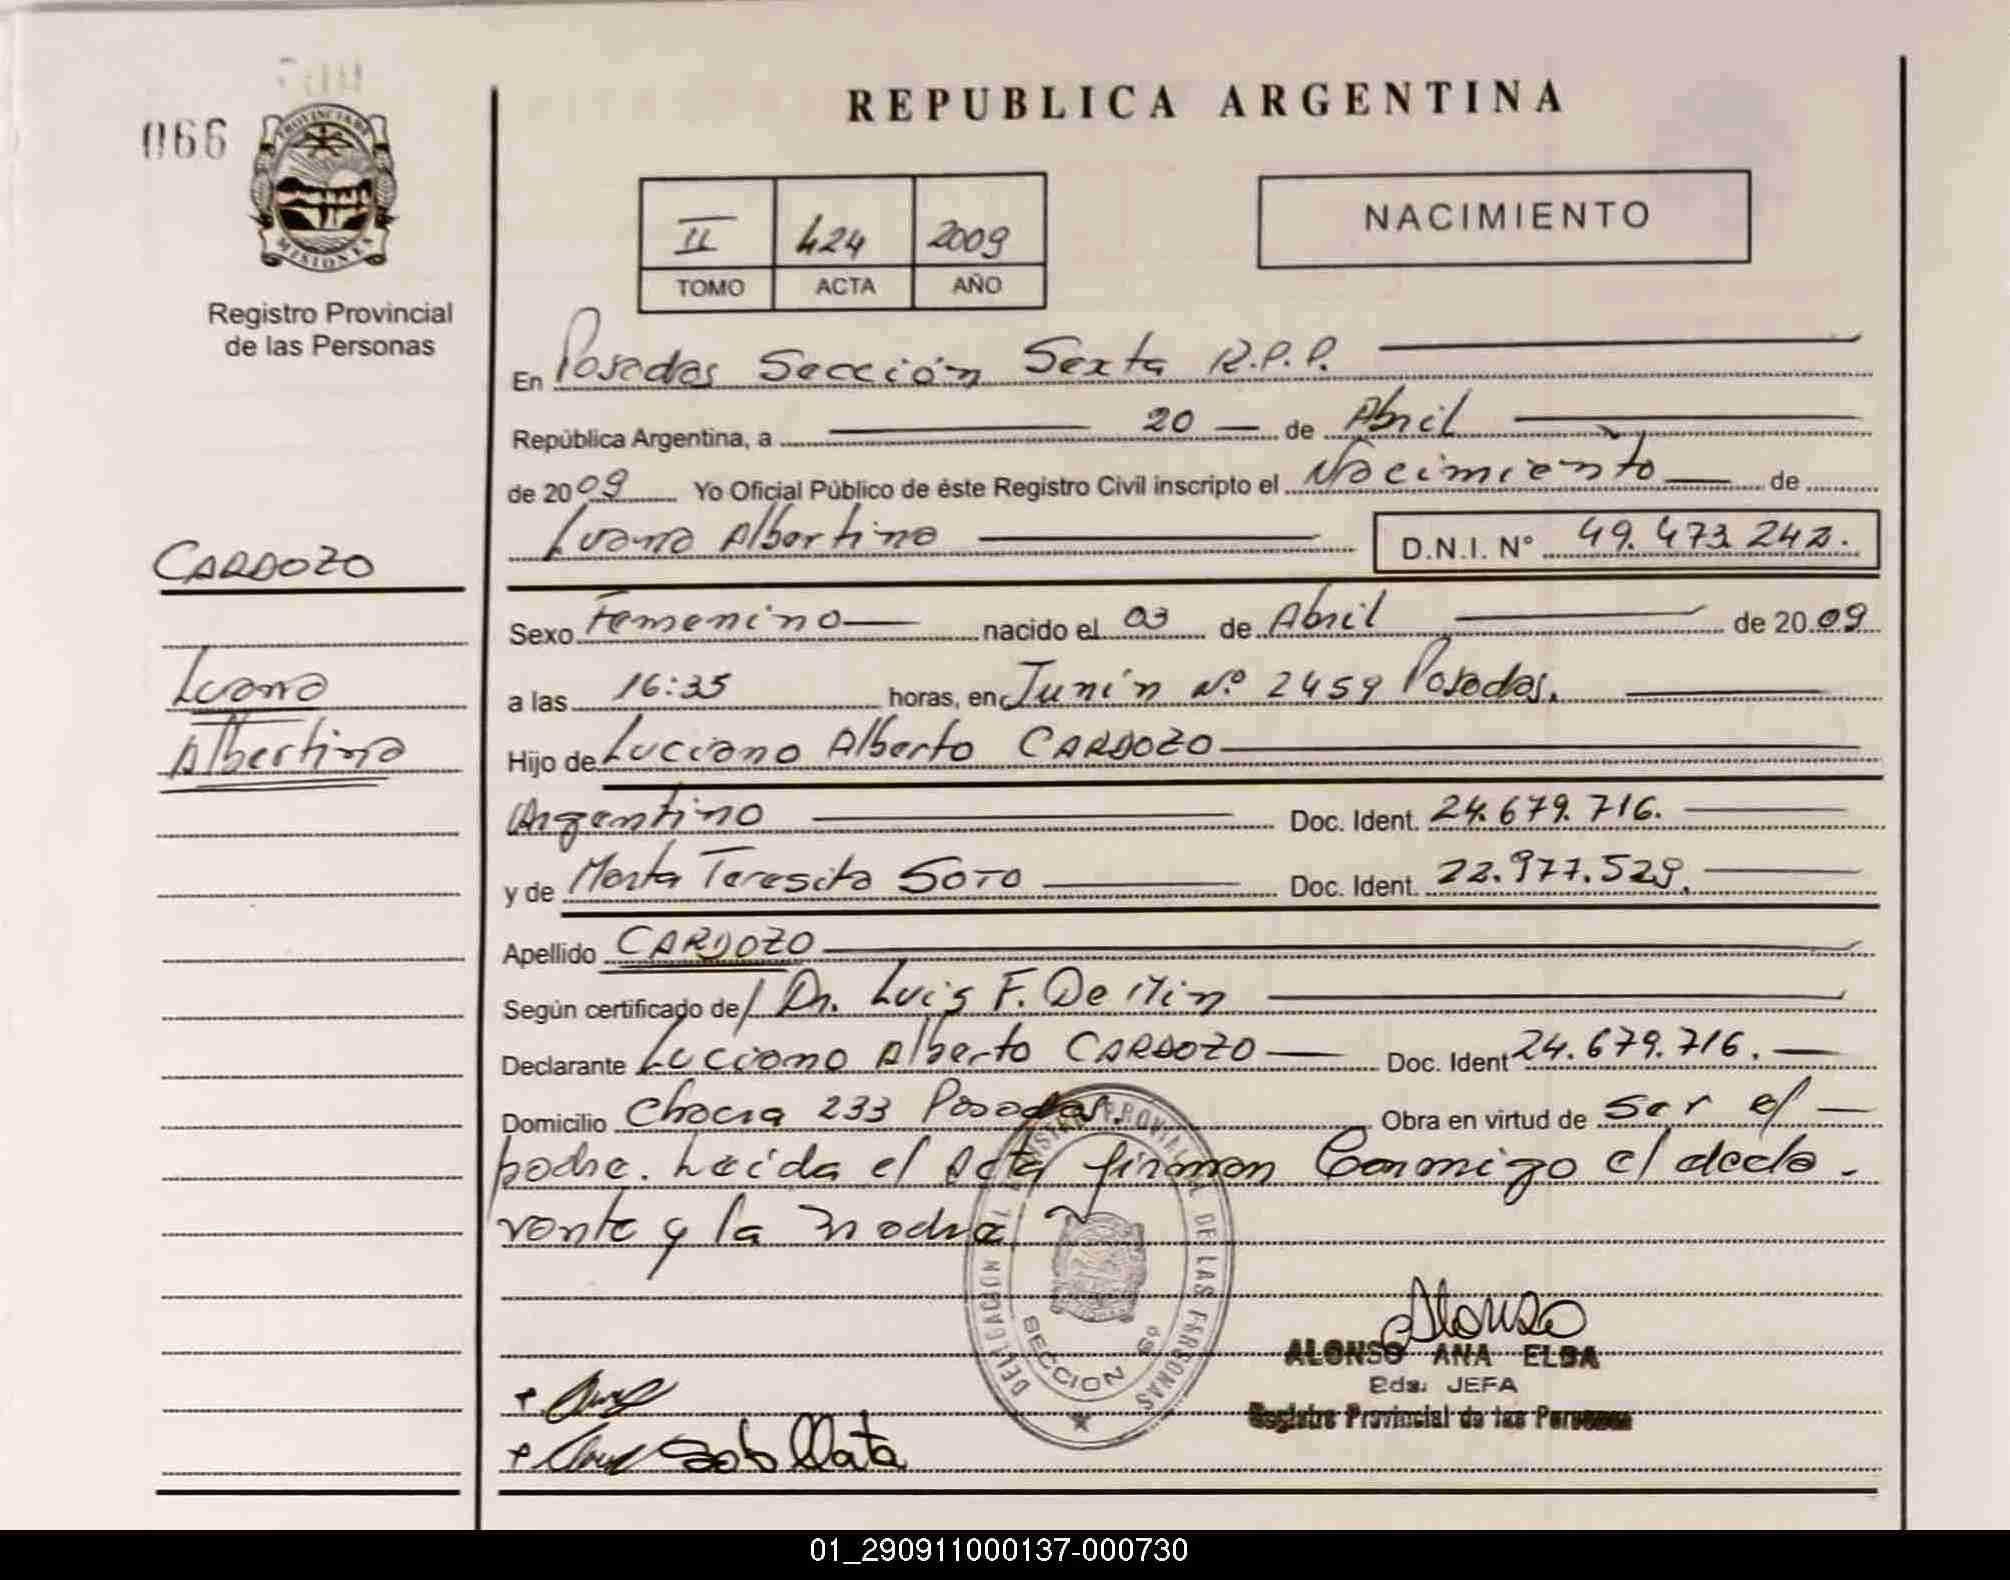 066
PROVINCIA DE
MISIONES
Registro Provincial
de las Personas
REPUBLICA ARGENTINA
II 424 2009
TOMO ACTA AÑO
NACIMIENTO
En Posadas Sección Sexta R.P.P.
República Argentina, a 20 de Abril
de 2009 Yo Oficial Público de éste Registro Civil inscripto el Nacimiento de
Luana Albertina D.N.I. N° 49.473.242.
CARDOZO
Luana
Albertina
Sexo Femenino nacido el 03 de Abril de 2009
a las 16:35 horas, en Junín N° 2459 Posadas.
Hijo de Luciano Alberto CARDOZO
Argentino Doc. Ident. 24.679.716.
y de Marta Teresita SOTO Doc. Ident. 22.977.529.
Apellido CARDOZO
Según certificado de Dr. Luis F. De Min
Declarante Luciano Alberto CARDOZO Doc. Ident 24.679.716.
Domicilio Chacra 233 Posadas. Obra en virtud de ser el
padre. Leída el Acta firman Conmigo el decla-
rante y la madre
DELEGACION REGISTRO PROVINCIAL DE LAS PERSONAS
SECCION 6º
Alonso
ALONSO ANA ELBA
Eds. JEFA
Registro Provincial de las Personas
Soto Marta
01_290911000137-000730